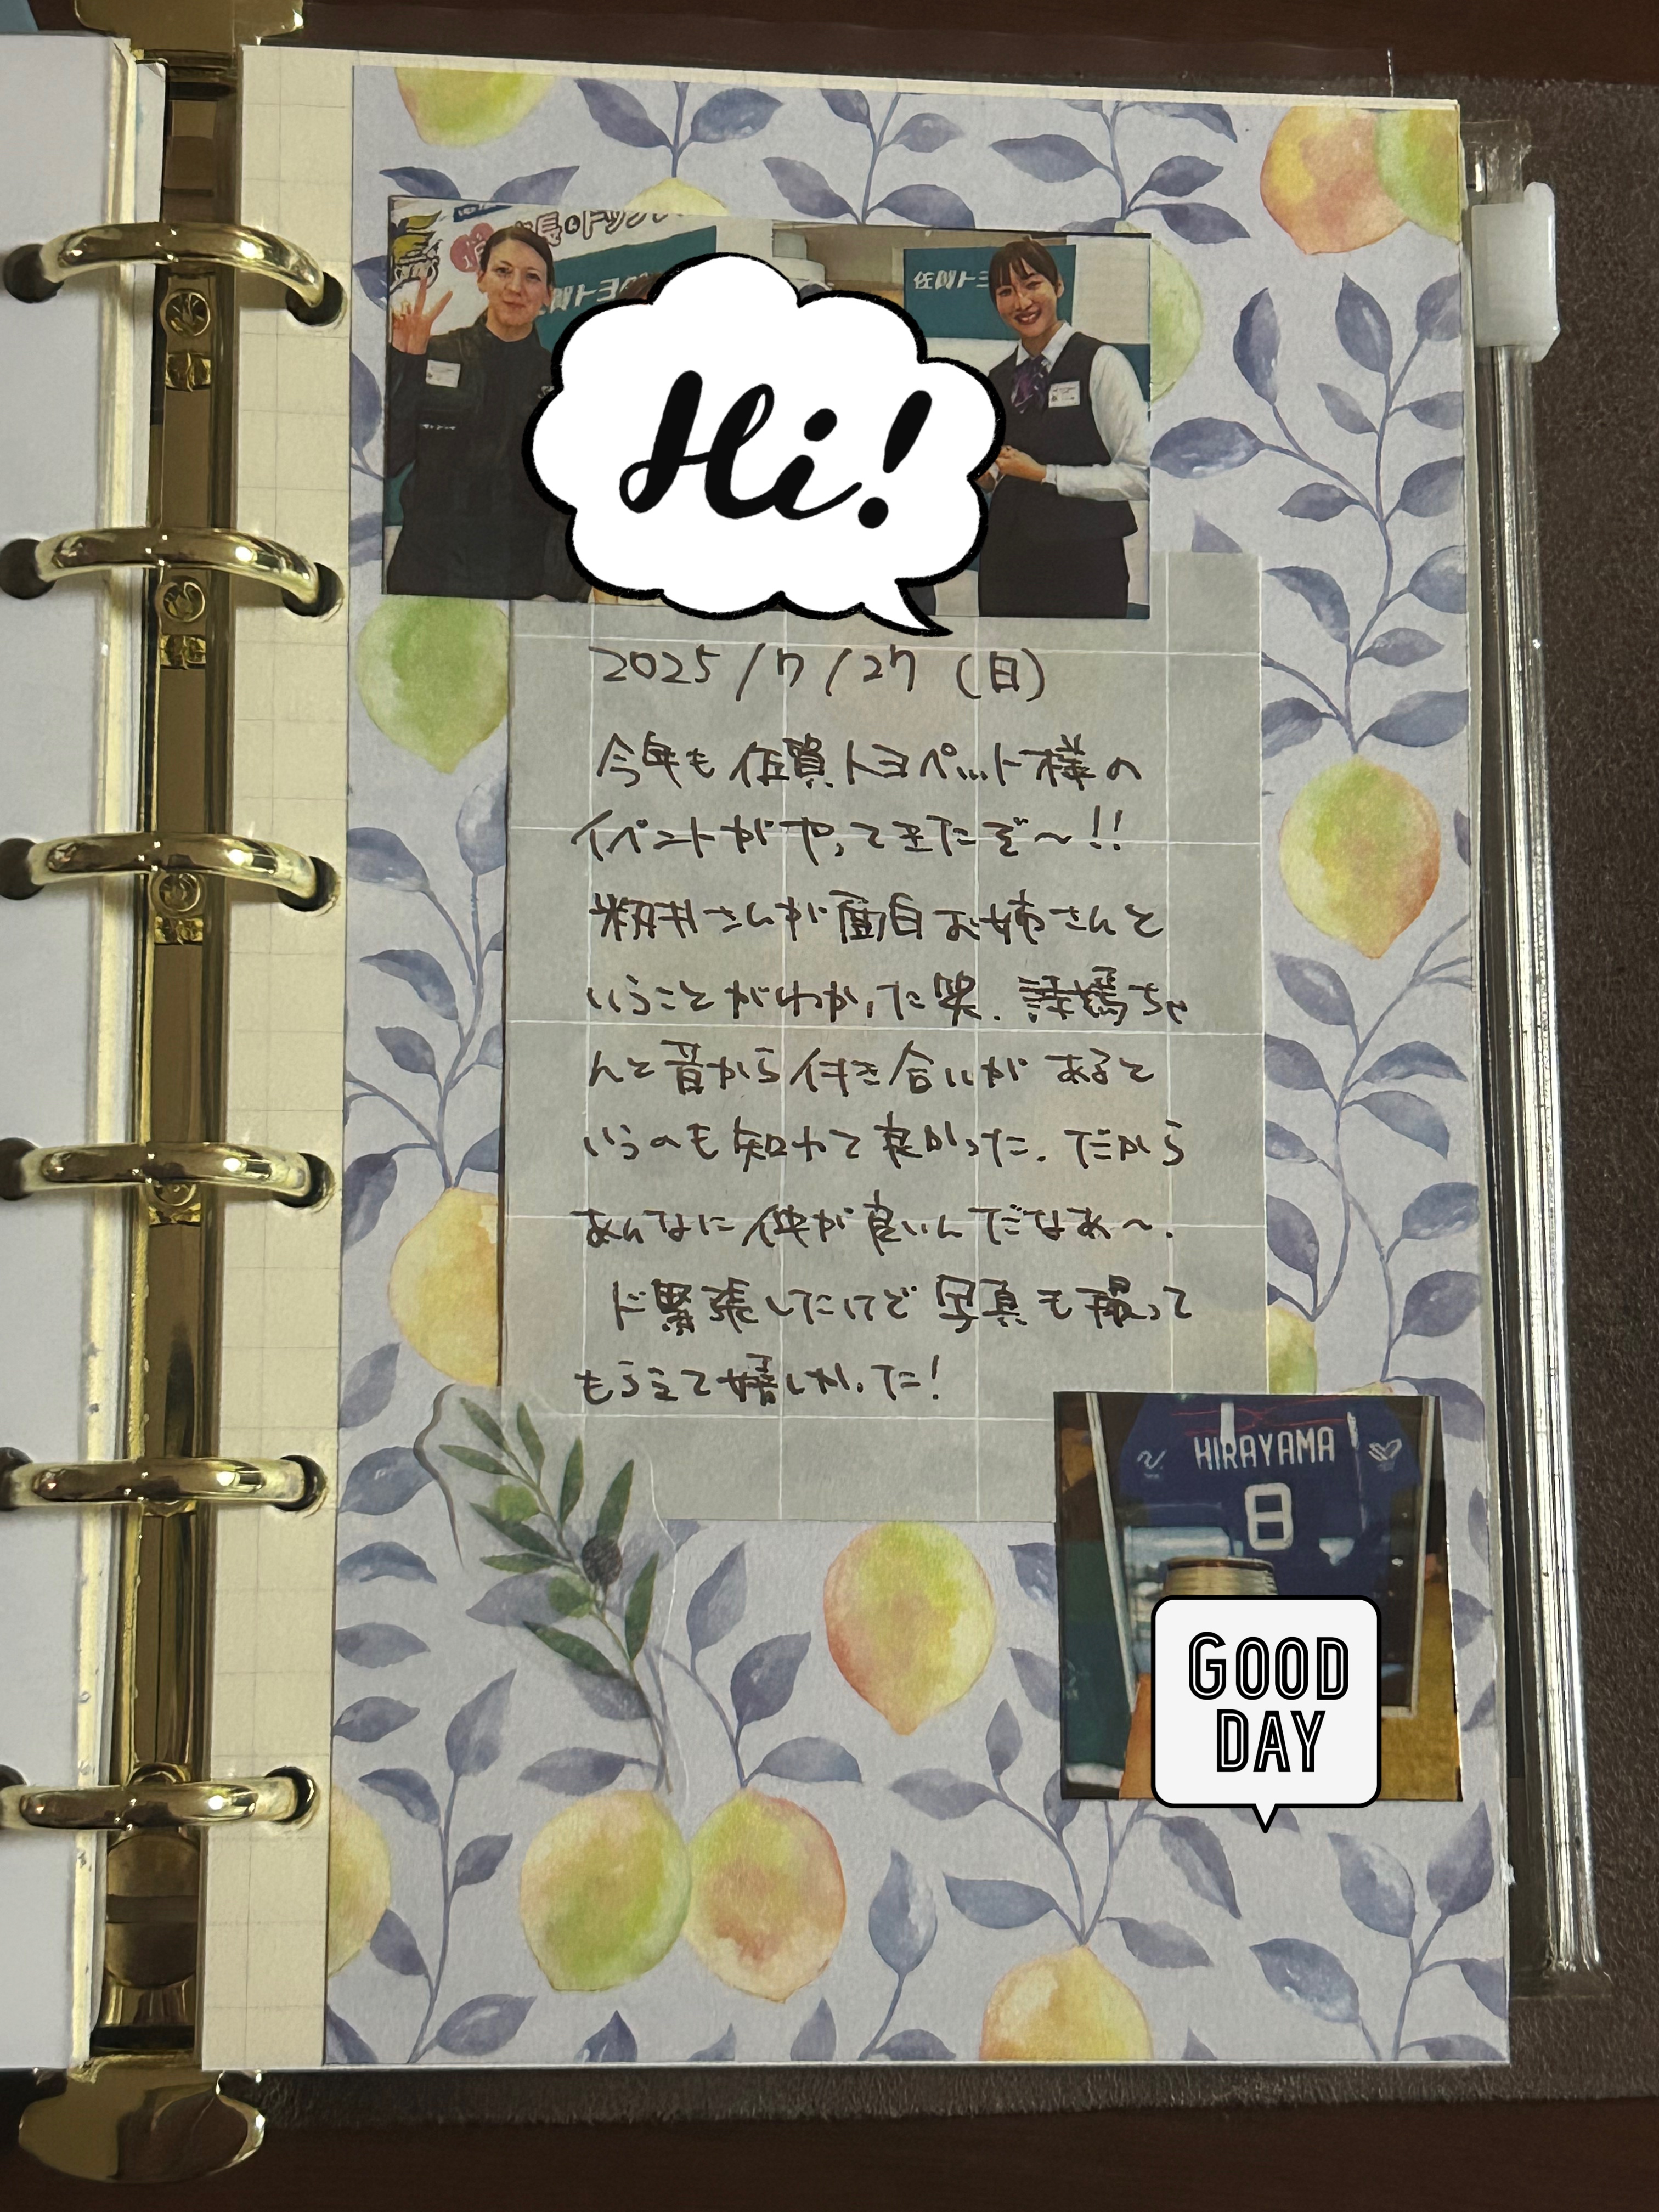 佐賀トヨ
Hi!
2025/7/27 (日)
今年も佐賀トヨペット様の
イベントがやってきたぞ〜!!
籾井さんが面白お姉さんと
いうことがわかった笑. 詩嫣ちゃ
んと昔から付き合いがあると
いうのも知れて良かった. だから
あんなに仲が良いんだなあ〜.
ド緊張したけど写真も撮って
もらえて嬉しかった!
HIRAYAMA
8
GOOD
DAY